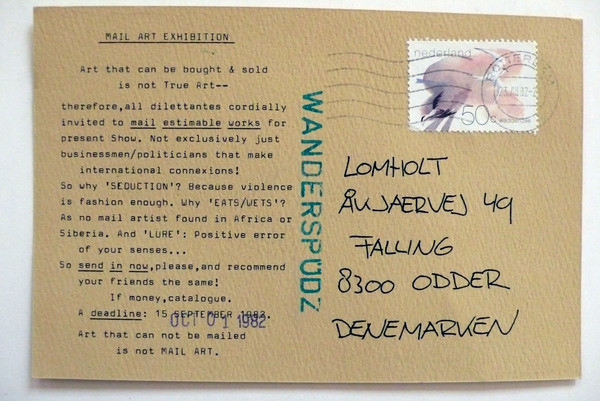 MAIL ART EXHIBITION
Art that can be bought & sold
is not True Art--
therefore,all dilettantes cordially
invited to mail estimable works for
present Show. Not exclusively just
businessmen/politicians that make
international connexions!
So why 'SEDUCTION'? Because violence
is fashion enough. Why 'EATS/WETS'?
As no mail artist found in Africa or
Siberia. And 'LURE': Positive error
of your senses...
So send in now,please,and recommend
your friends the same!
If money,catalogue.
A deadline: 15 SEPTEMBER 1982.
OCT 01 1982
Art that can not be mailed
is not MAIL ART.
WANDERSPÜDZ
nederland
50c
LOMHOLT
ÅUJAERVEJ 49
FALLING
8300 ODDER
DENEMARKEN